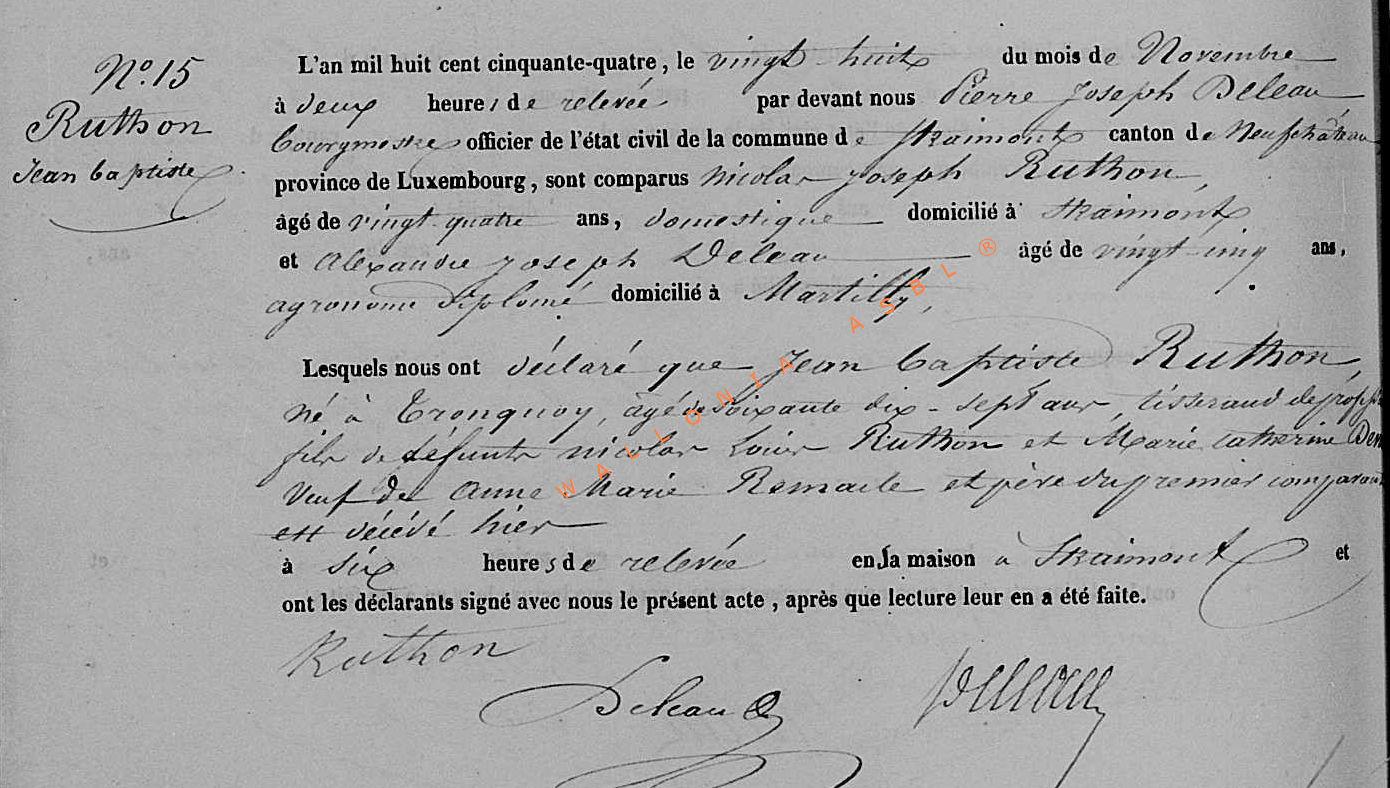 N.o 15
Ruthon
Jean baptiste
L'an mil huit cent cinquante-quatre, le vingt-huit du mois de Novembre
à deux heures de relevée par devant nous Pierre Joseph Deleau,
bourgmestre officier de l'état civil de la commune de Straimont canton de Neufchâteau
province de Luxembourg, sont comparus Nicolas Joseph Ruthon,
âgé de vingt-quatre ans, domestique domicilié à Straimont
et Alexandre Joseph Deleau âgé de vingt-cinq ans,
agronome diplomé domicilié à Martilly,
Lesquels nous ont déclaré que Jean baptiste Ruthon,
né à Tronquoy, agé de soixante dix-sept ans, tisserand de
fils de défunts nicolas Louis Ruthon et Marie catherine
Veuf de anne Marie Remacle et père du premier comparant
est décédé hier
à six heures de relevée en sa maison à Straimont et
ont les déclarants signé avec nous le présent acte, après que lecture leur en a été faite.
Ruthon
Deleau
Deleau
WALLONIA ASBL ®